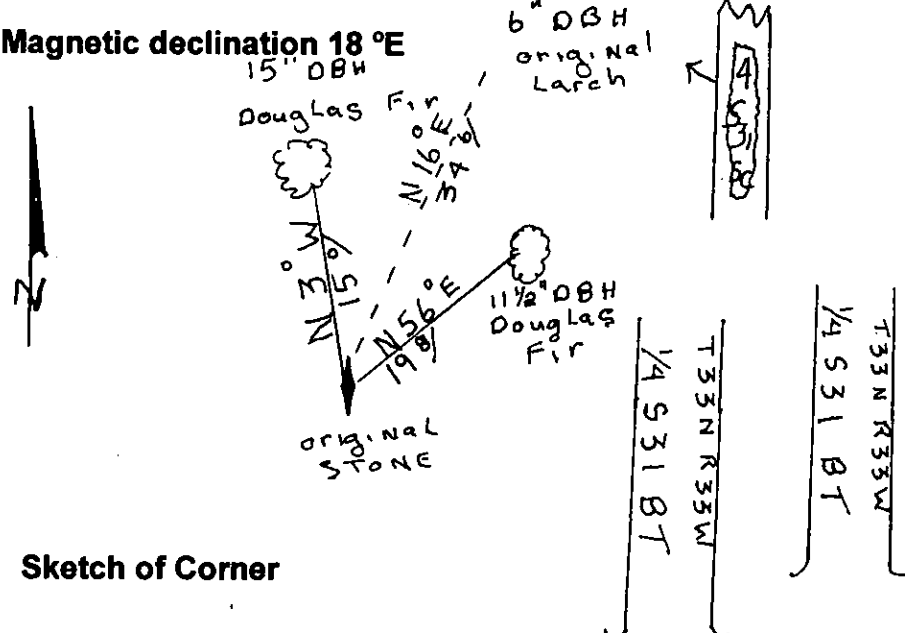 Magnetic declination 18 °E
15" DBH
Douglas Fir
6" DBH
original
Larch
N
N 3° W
15.9
N 16° E
34.6
N 56° E
19.8
11 1/2" DBH
Douglas
Fir
original
STONE
4
S
31
T33N R33W
1/4 S31 BT
T33N R33W
1/4 S31 BT
Sketch of Corner